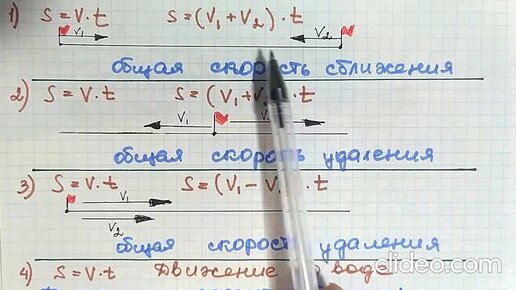 1) S = V · t S = (V₁ + V₂) · t
V₁ V₂
общая скорость сближения
2) S = V · t S = (V₁ + V · t
V₁
общая скорость удаления
3) S = V · t S = (V₁ - V · t
V₁
V₂
общая скорость удаления
4) S = V · t Движение воде
dideo.com